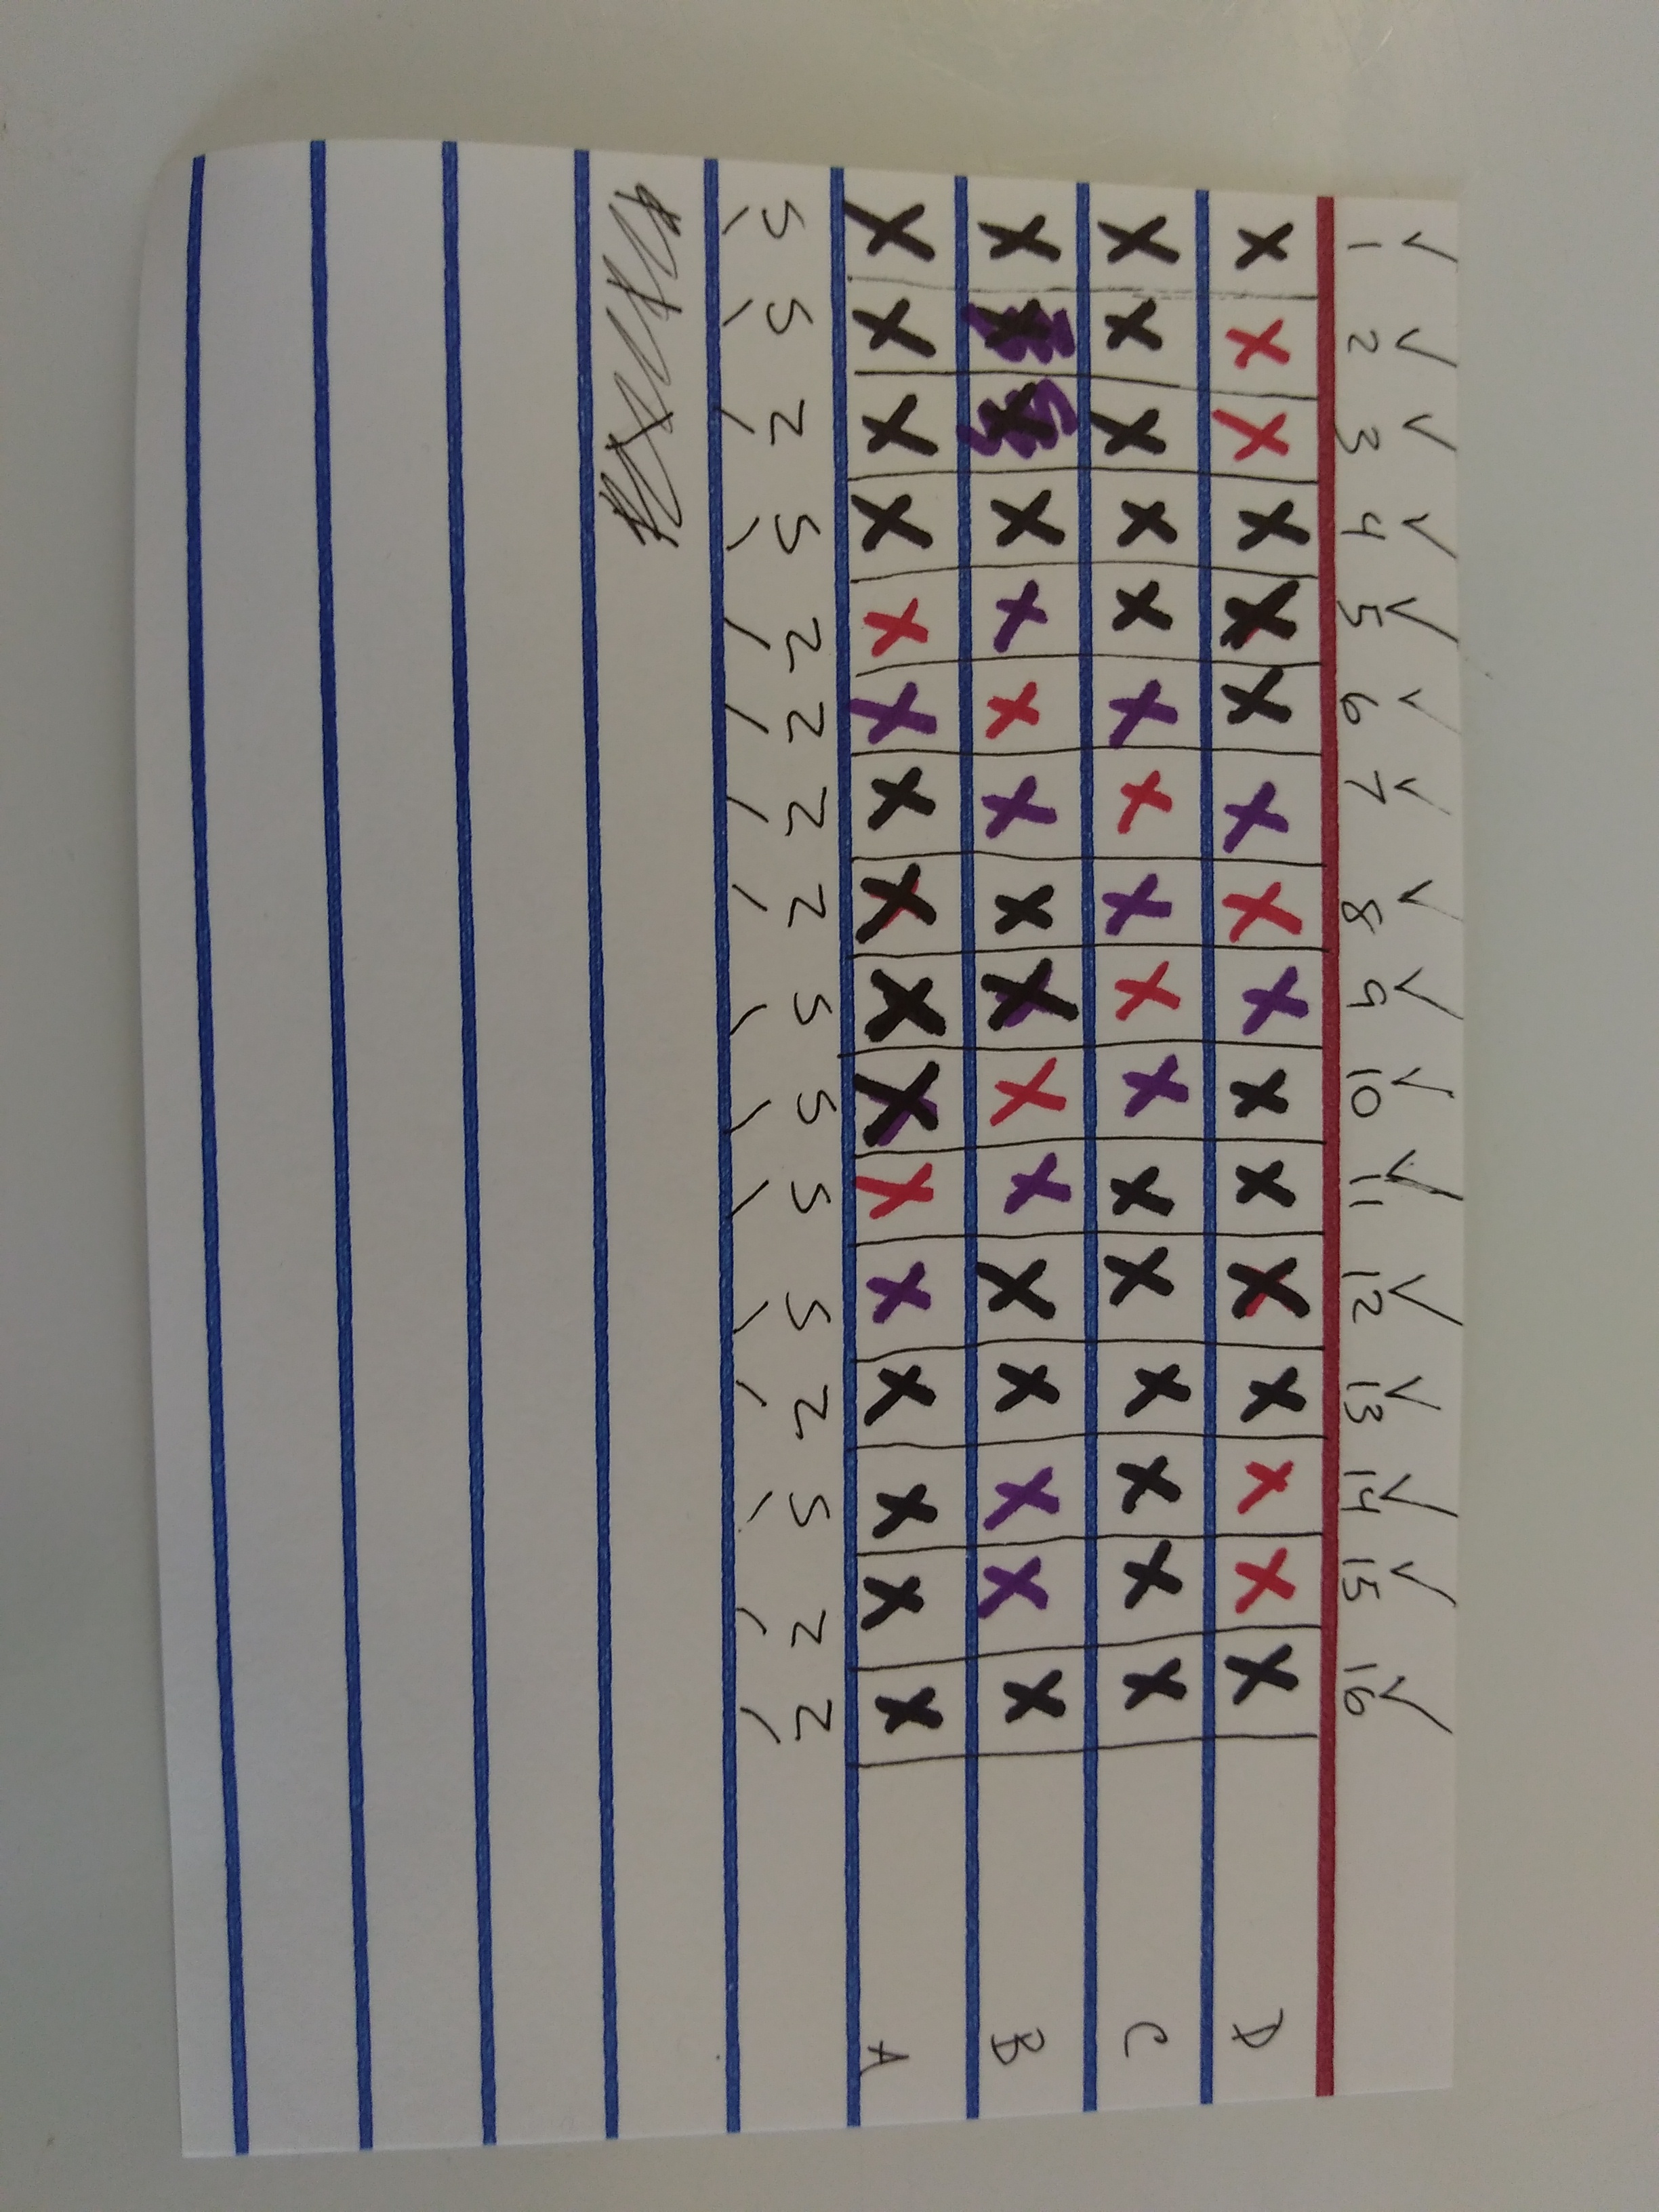 ✓ ✓ ✓ ✓ ✓ ✓ ✓ ✓ ✓ ✓ ✓ ✓ ✓ ✓ ✓ ✓
1 2 3 4 5 6 7 8 9 10 11 12 13 14 15 16
X X X X X X X X X X X X X X X X D
X X X X X X X X X X X X X X X X C
X X X X X X X X X X X X X X X X B
X X X X X X X X X X X X X X X X A
S S Z S Z Z Z Z S S S S Z S Z Z
/ / \ / \ \ \ \ / / / / \ / \ \